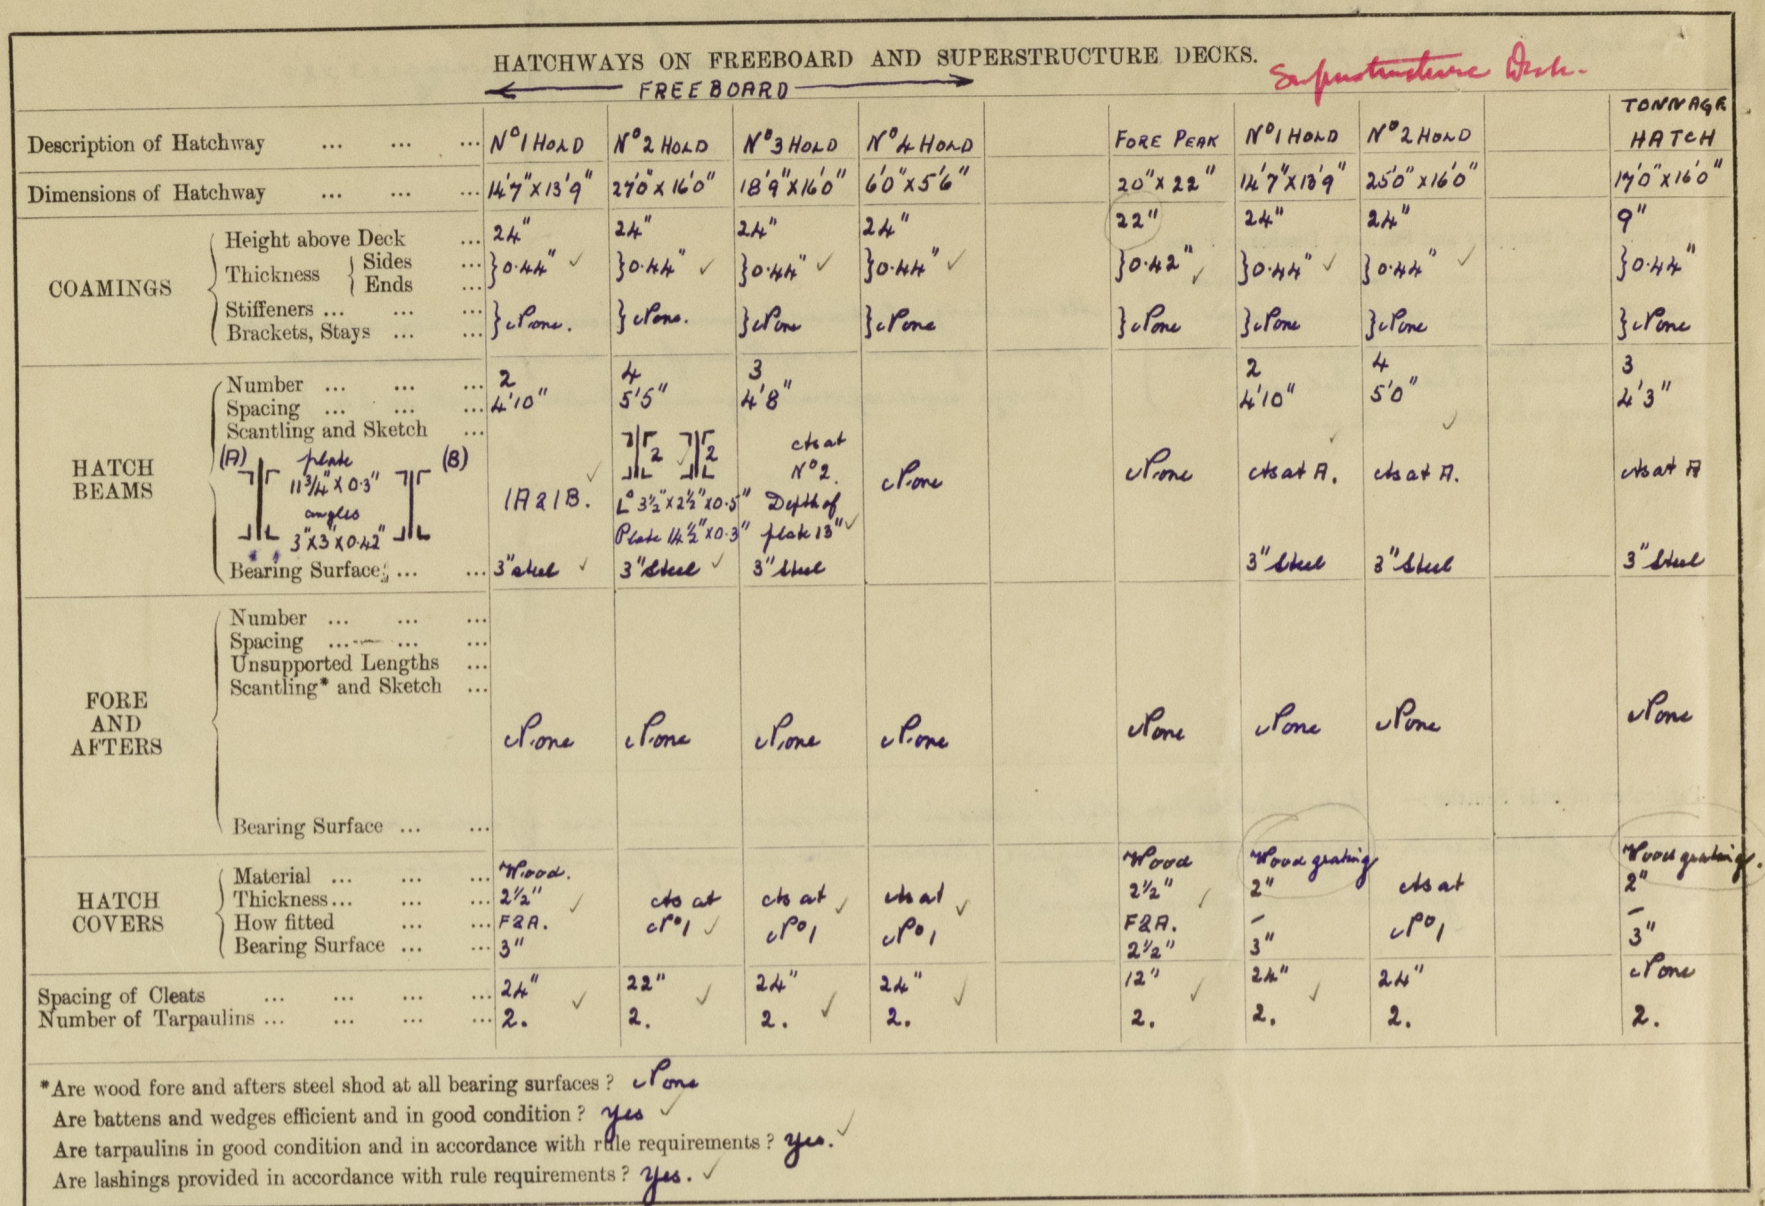 HATCHWAYS ON FREEBOARD AND SUPERSTRUCTURE DECKS.
Superstructure Deck.
FREEBOARD
Description of Hatchway ... ... ... No 1 HOLD No 2 HOLD No 3 HOLD No 4 HOLD FORE PEAK No 1 HOLD No 2 HOLD TONNAGE HATCH
Dimensions of Hatchway ... ... ... 14'7" x 13'9" 27'0" x 16'0" 18'9" x 16'0" 6'0" x 5'6" 20" x 22" 14'7" x 13'9" 25'0" x 16'0" 17'0" x 16'0"
COAMINGS
Height above Deck ... 24" 24" 24" 24" 22" 24" 24" 9"
Thickness { Sides ... } 0.44" } 0.44" } 0.44" } 0.44" } 0.42" } 0.44" } 0.44" } 0.44"
Ends ...
Stiffeners ... ... ... } None. } None. } None } None } None } None } None } None
Brackets, Stays ... ...
HATCH BEAMS
Number ... ... ... 2 4 3 2 4 3
Spacing ... ... ... 4'10" 5'5" 4'8" 4'10" 5'0" 4'3"
Scantling and Sketch ...
(A) plate (B)
11 3/4" x 0.3"
angles
3" x 3" x 0.42"
1A & 1B.
2 2
L° 3½" x 2½" x 0.5"
Plate 14½" x 0.3"
As at
No 2.
Depth of
plate 13"
None None As at A. As at A. As at A
Bearing Surface ... ... 3" steel 3" Steel 3" Steel 3" Steel 3" Steel 3" Steel
FORE AND AFTERS
Number ... ... ...
Spacing ... ... ...
Unsupported Lengths ...
Scantling* and Sketch ...
None None None None None None None None
Bearing Surface ... ...
HATCH COVERS
Material ... ... ... Wood. Wood Wood grating Wood grating.
Thickness ... ... ... 2½" As at As at As at 2½" 2" As at 2"
How fitted ... ... F&A. No 1 No 1 No 1 F&A. - No 1 -
Bearing Surface ... ... 3" 2½" 3" 3"
Spacing of Cleats ... ... ... ... 24" 22" 24" 24" 12" 24" 24" None
Number of Tarpaulins ... ... ... ... 2. 2. 2. 2. 2. 2. 2. 2.
*Are wood fore and afters steel shod at all bearing surfaces? None
Are battens and wedges efficient and in good condition? Yes
Are tarpaulins in good condition and in accordance with rule requirements? Yes.
Are lashings provided in accordance with rule requirements? Yes.